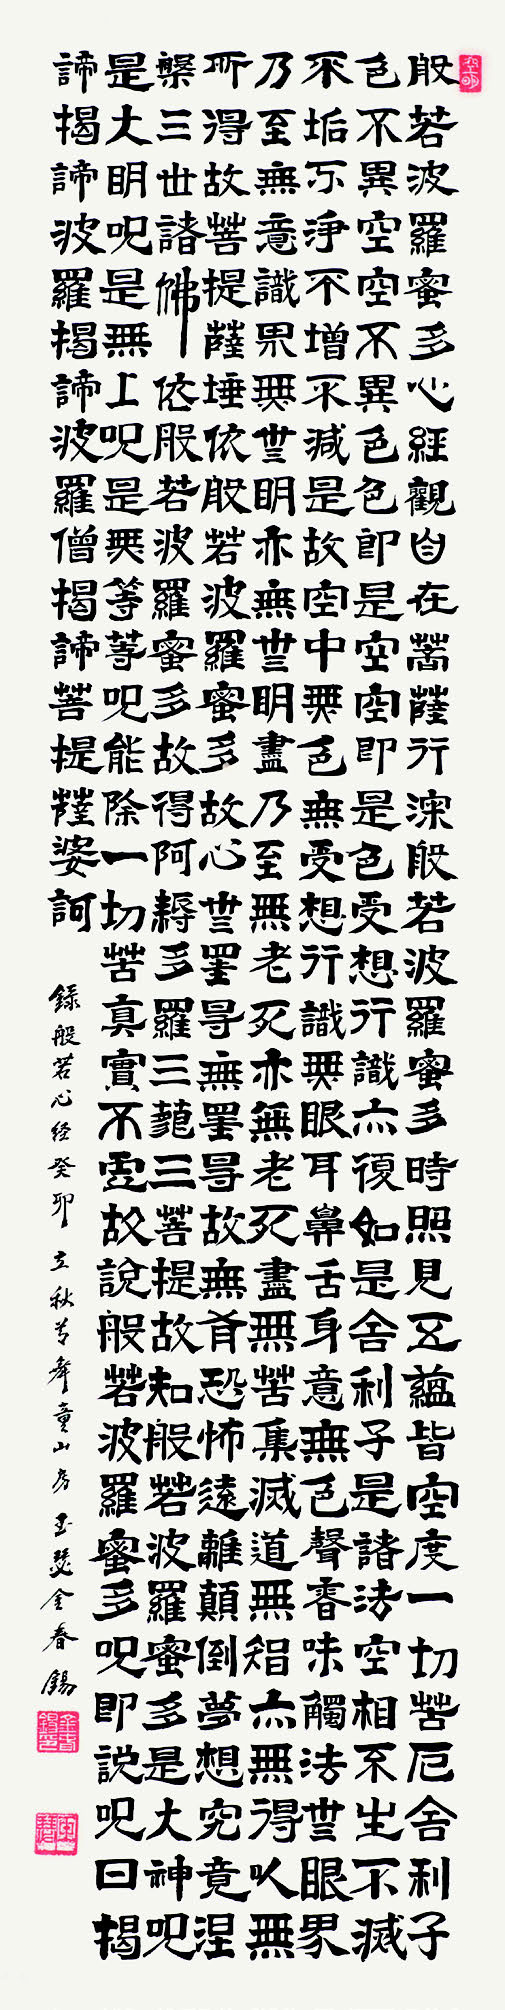 般若波羅蜜多心經觀自在菩薩行深般若波羅蜜多時照見五蘊皆空度一切苦厄舍利子
色不異空空不異色色即是空空即是色受想行識亦復如是舍利子是諸法空相不生不滅
不垢不淨不增不減是故空中無色無受想行識無眼耳鼻舌身意無色聲香味觸法無眼界
乃至無意識界無無明亦無無明盡乃至無老死亦無老死盡無苦集滅道無智亦無得以無
所得故菩提薩埵依般若波羅蜜多故心無罣㝵無罣㝵故無有恐怖遠離顛倒夢想究竟涅
槃三世諸佛依般若波羅蜜多故得阿耨多羅三藐三菩提故知般若波羅蜜多是大神呪
是大明呪是無上呪是無等等呪能除一切苦真實不虛故說般若波羅蜜多呪即說呪曰揭
諦揭諦波羅揭諦波羅僧揭諦菩提薩婆訶
錄般若心经癸卯立秋於舜童山房玉瑟金春錫